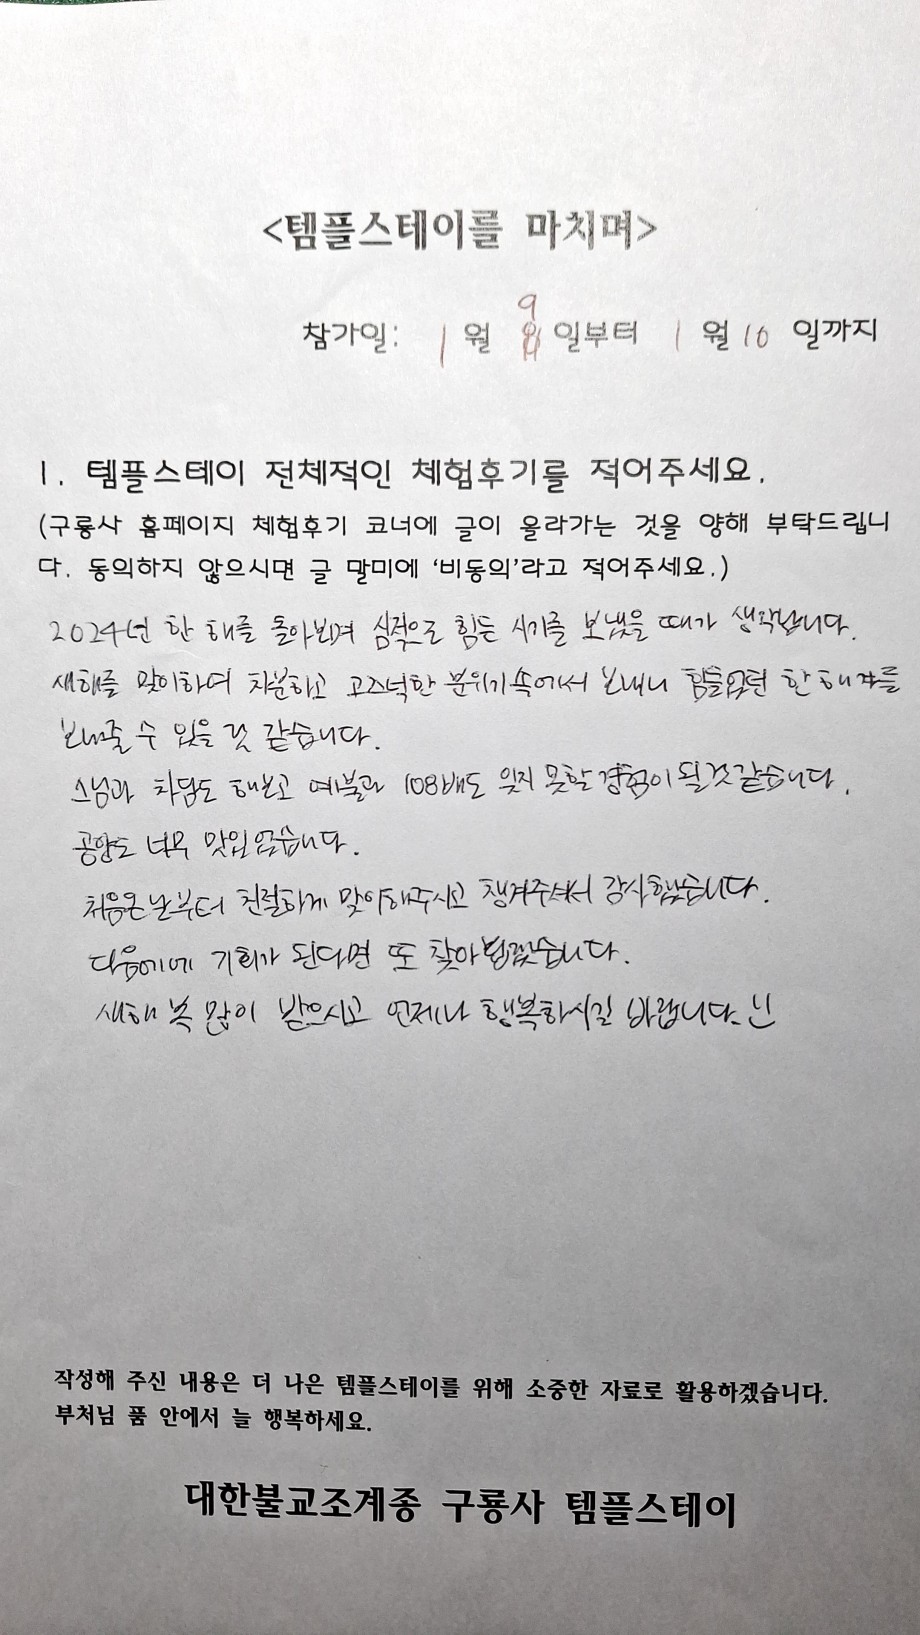 <템플스테이를 마치며>
참가일: 1월 9일부터 1월 10일까지
1. 템플스테이 전체적인 체험후기를 적어주세요.
(구룡사 홈페이지 체험후기 코너에 글이 올라가는 것을 양해 부탁드립니
다. 동의하지 않으시면 글 말미에 '비동의'라고 적어주세요.)
2024년 한 해를 돌아보며 심적으로 힘든 시기를 보냈을 때가 생각납니다.
새해를 맞이하여 차분하고 고즈넉한 분위기속에서 보내니 힘들었던 한 해를
보내줄 수 있을 것 같습니다.
스님과 차담도 해보고 예불과 108배도 잊지 못할 경험이 될것 같습니다.
공양도 너무 맛있었습니다.
처음온날부터 친절하게 맞이해주시고 챙겨주셔서 감사했습니다.
다음에에 기회가 된다면 또 찾아뵙겠습니다.
새해 복 많이 받으시고 언제나 행복하시길 바랍니다.
작성해 주신 내용은 더 나은 템플스테이를 위해 소중한 자료로 활용하겠습니다.
부처님 품 안에서 늘 행복하세요.
대한불교조계종 구룡사 템플스테이